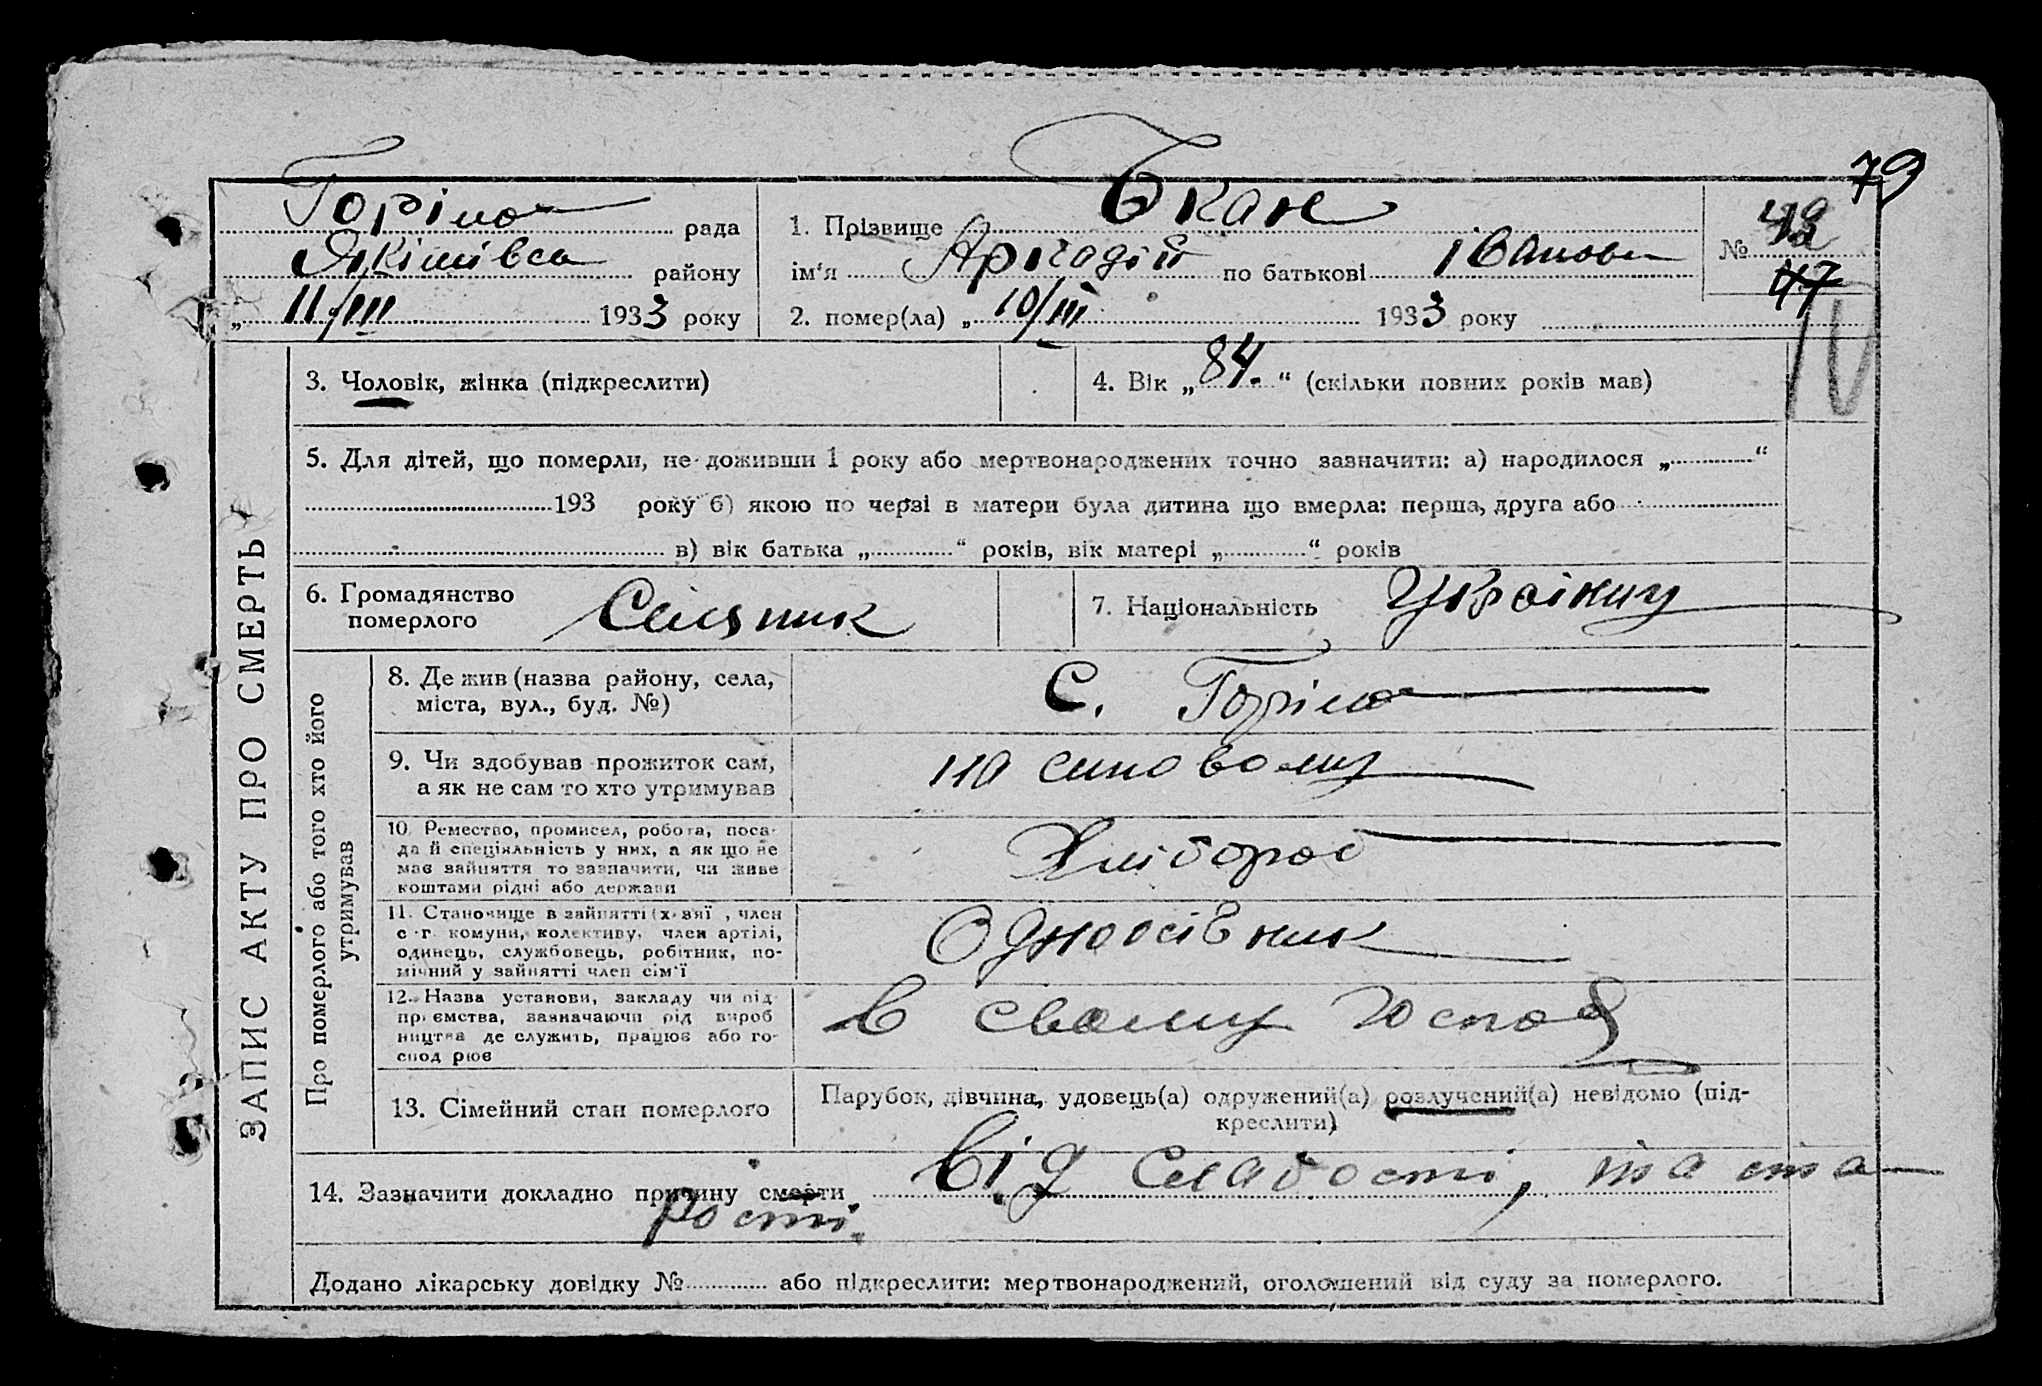 79
Горіло рада
Якімівсь району
„ 11/III 1933 року
1. Прізвище Бкан
ім'я Аркадій по батькові Іванови
2. помер(ла) „ 10/III 1933 року
№ 42
47
ЗАПИС АКТУ ПРО СМЕРТЬ
3. Чоловік, жінка (підкреслити)
4. Вік „ 84. “ (скільки повних років мав)
5. Для дітей, що померли, не доживши 1 року або мертвонароджених точно зазначити: а) народилося „ “
193 року б) якою по черзі в матери була дитина що вмерла: перша, друга або
в) вік батька „ “ років, вік матері „ “ років
6. Громадянство
померлого Селяник
7. Національність Українц
Про померлого або того хто його
утримував
8. Де жив (назва району, села,
міста, вул., буд. №) С. Горіло
9. Чи здобував прожиток сам,
а як не сам то хто утримував на синовому
10. Ремество, промисел, робота, поса-
да й спеціяльність у них, а як що не
має зайняття то зазначити, чи живе
коштами рідні або держави
Хлібороб
11. Становище в зайнятті (х-зяї, член
с-г. комуни, колективу, член артілі,
одинець, службовець, робітник, по-
мічний у зайнятті член сім'ї
Одноосібник
12. Назва установи, закладу чи під
приємства, зазначаючи рід вироб
ництва де служить, працює або го-
сподарює
в своему господ
13. Сімейний стан померлого
Парубок, дівчина, удовець(а) одружений(а) розлучений(а) невідомо (під-
креслити)
14. Зазначити докладно причину смерти Від слабости, та ста
рости.
Додано лікарську довідку № або підкреслити: мертвонароджений, оголошений від суду за померлого.